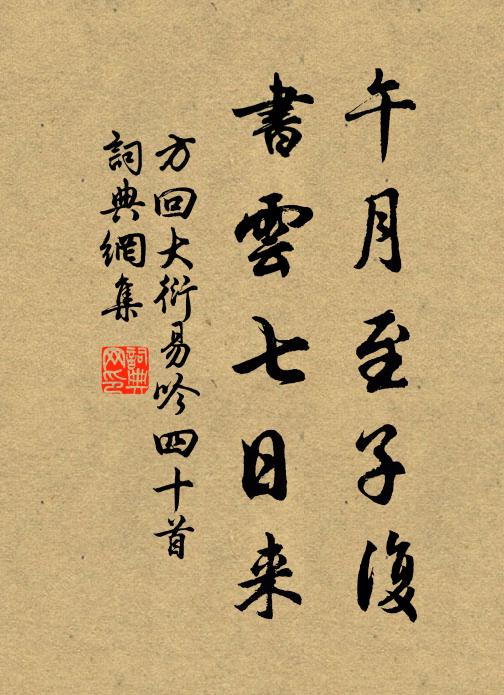 午月至子復
書雲七日来
方回大衍易吟四十首
詞典網集
詞典网印